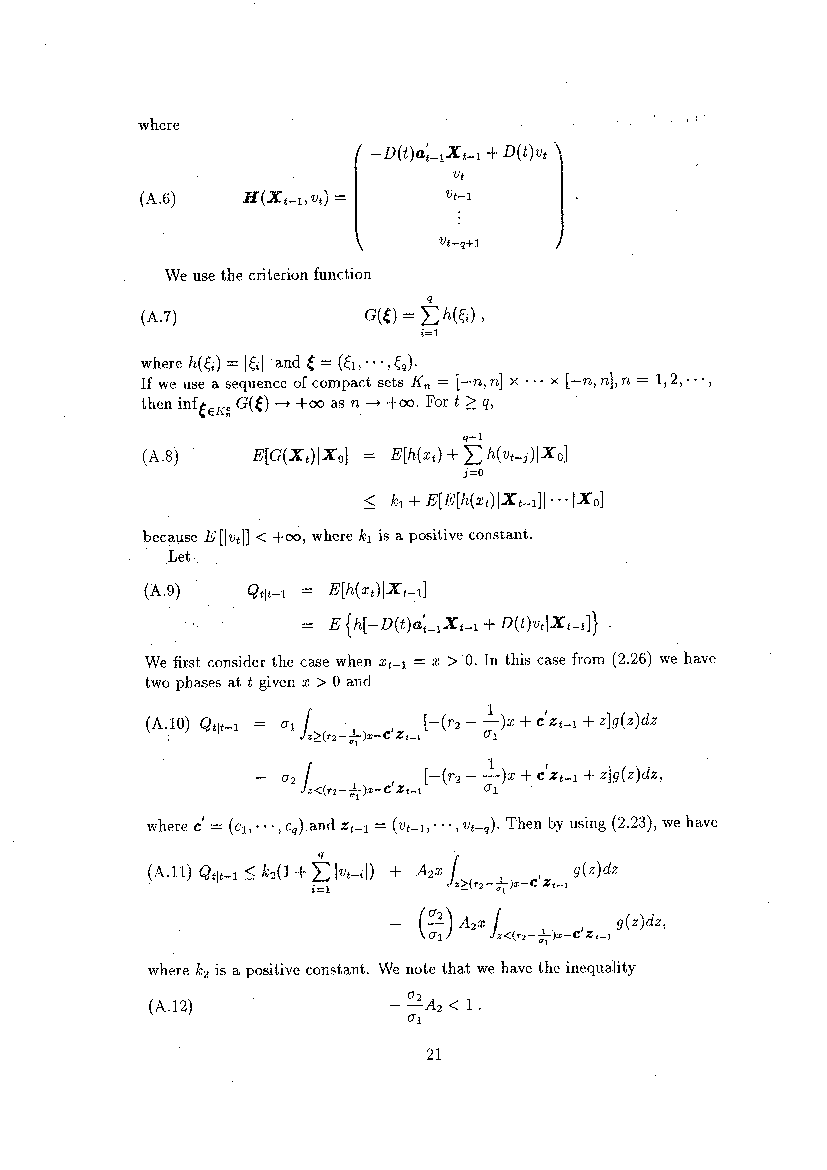 where
(A.6) H(X_{t−1}, v_t) = ( −D(t)a'_{t−1}X_{t−1} + D(t)v_t
v_t
v_{t−1}
⋮
v_{t−q+1} ) .
We use the criterion function
(A.7) G(ξ) = ∑_{i=1}^{q} h(ξ_i) ,
where h(ξ_i) = |ξ_i| and ξ = (ξ_1, ···, ξ_q).
If we use a sequence of compact sets K_n = [−n, n] × ··· × [−n, n], n = 1, 2, ···,
then inf_{ξ∈K_n^c} G(ξ) → +∞ as n → +∞. For t ≥ q,
(A.8) E[G(X_t)|X_0] = E[h(x_t) + ∑_{j=0}^{q−1} h(v_{t−j})|X_0]
≤ k_1 + E[E[h(x_t)|X_{t−1}]| ··· |X_0]
because E[|v_t|] < +∞, where k_1 is a positive constant.
Let
(A.9) Q_{t|t−1} = E[h(x_t)|X_{t−1}]
= E {h[−D(t)a'_{t−1}X_{t−1} + D(t)v_t|X_{t−1}]} .
We first consider the case when x_{t−1} = x > 0. In this case from (2.26) we have
two phases at t given x > 0 and
(A.10) Q_{t|t−1} = σ_1 ∫_{z≥(r_2−\frac{1}{σ_1})x−c'z_{t−1}} [−(r_2 − \frac{1}{σ_1})x + c'z_{t−1} + z]g(z)dz
− σ_2 ∫_{z<(r_2−\frac{1}{σ_1})x−c'z_{t−1}} [−(r_2 − \frac{1}{σ_1})x + c'z_{t−1} + z]g(z)dz,
where c' = (c_1, ···, c_q) and z_{t−1} = (v_{t−1}, ···, v_{t−q}). Then by using (2.23), we have
(A.11) Q_{t|t−1} ≤ k_2(1 + ∑_{i=1}^{q} |v_{t−i}|) + A_2x ∫_{z≥(r_2−\frac{1}{σ_1})x−c'z_{t−1}} g(z)dz
− (\frac{σ_2}{σ_1}) A_2x ∫_{z<(r_2−\frac{1}{σ_1})x−c'z_{t−1}} g(z)dz,
where k_2 is a positive constant. We note that we have the inequality
(A.12) − \frac{σ_2}{σ_1}A_2 < 1 .
21